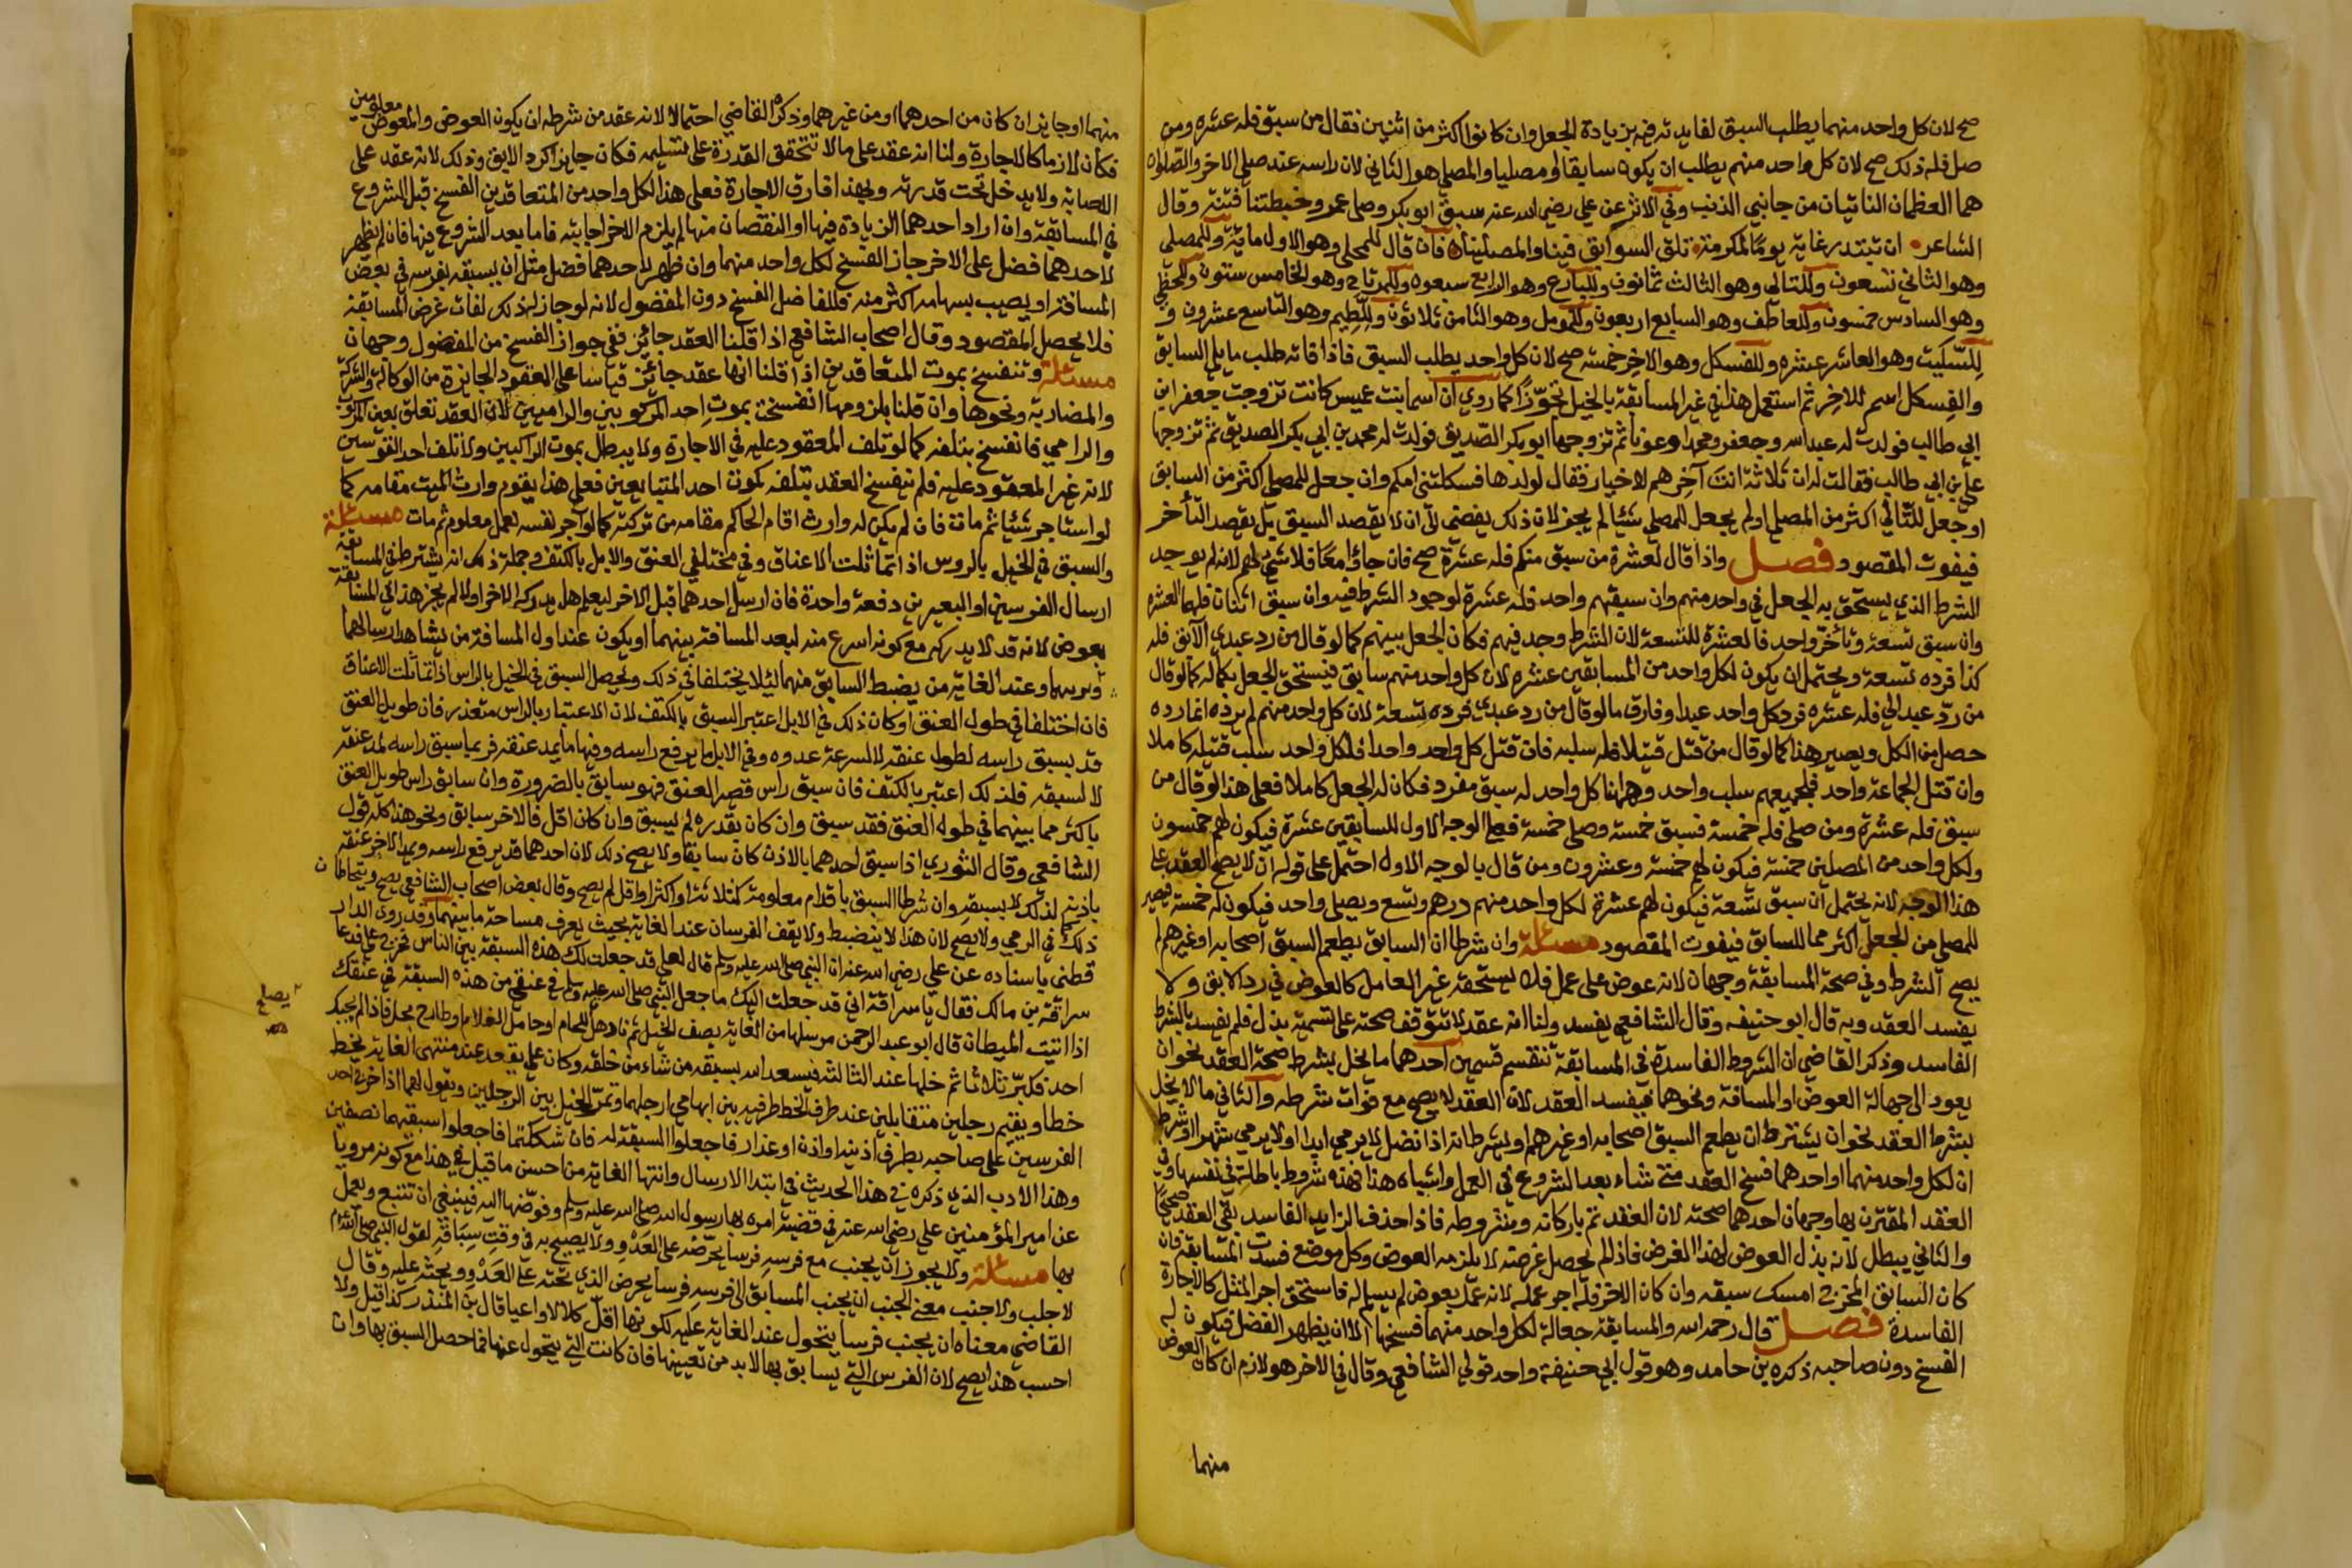 صح لان كل واحد منهما يطلب السبق لفايدته فيه بزيادة الجعل وان كانوا اكثر من اثنين فقال من سبق فله عشره ومن
صلى فله ذلك صح لان كل واحد منهم يطلب ان يكون سابقا او مصليا والمصلي هو الثاني لان راسه عند صلى الاخر والصلوان
هما العظمان الناتيان من جانبي الذنب وفي الاثر عن علي رضي الله عنه سبق ابو بكر وصلى عمر وخبطتنا فتنة وقال
الشاعر ان تبتدر غاية يوما لمكرمة تلق السوابق فينا والمصلينا فان قال للمجلي وهو الاول ماية وللمصلي
وهو الثاني تسعون وللتالي وهو الثالث ثمانون وللبارع وهو الرابع سبعون وللمرتاح وهو الخامس ستون وللحظي
وهو السادس خمسون وللعاطف وهو السابع اربعون وللمومل وهو الثامن ثلاثون وللطيم وهو التاسع عشرون و
للسكيت وهو العاشر عشره وللفسكل وهو الاخر خمسه صح لان كل واحد يطلب السبق فاذا فاته طلب ما يلي السابق
والفسكل اسم للاخر ثم استعمل هذا في غير المسابقة بالخيل تجوزا كما روي ان اسما بنت عميس كانت تزوجت جعفر ابن
ابي طالب فولدت له عبد الله وجعفر ومحمدا وعونا ثم تزوجها ابو بكر الصديق فولدت له محمد بن ابي بكر الصديق ثم تزوجها
علي بن ابي طالب فقالت له ان ثلاثة انت آخرهم لاخيار فقال لولدها فسكلتني امكم وان جعل للمصلي اكثر من السابق
او جعل للتالي اكثر من المصلي او لم يجعل للمصلي شيئا لم يجز لان ذلك يفضي الى ان لا يقصد السبق بل يقصد التأخر
فيفوت المقصود فصل واذا قال لعشرة من سبق منكم فله عشرة صح فان جاؤا معا فلا شي لهم لانه لم يوجد
الشرط الذي يستحق به الجعل في واحد منهم وان سبقهم واحد فله عشرة لوجود الشرط فيه وان سبق اثنان فلهما العشره
وان سبق تسعة وتأخر واحد فالعشرة للتسعة لان الشرط وجد فيهم فكان الجعل بينهم كما لو قال من رد عبدي الآبق فله
كذا فرده تسعة ويحتمل ان يكون لكل واحد من المسابقين عشره لان كل واحد منهم سابق فيستحق الجعل بكماله كما لو قال
من رد عبدا لي فله عشره فرد كل واحد عبدا وفارق ما لو قال من رد عبدي فرده تسعة لان كل واحد منهم لم يرده انما رده
حصل من الكل ويصير هذا كما لو قال من قتل قتيلا فله سلبه فان قتل كل واحد واحدا فلكل واحد سلب قتيله كاملا
وان قتل الجماعة واحد فلجميعهم سلب واحد وههنا كل واحد له سبق مفرد فكان له الجعل كاملا فعلى هذا لو قال من
سبق فله عشرة ومن صلى فله خمسة فسبق خمسة وصلى خمسة فعلى الوجه الاول للسابقين عشرة فيكون لهم خمسون
ولكل واحد من المصلين خمسة فيكون لهم خمسة وعشرون ومن قال بالوجه الاول احتمل على قوله ان لا يصح العقد على
هذا الوجه لانه يحتمل ان سبق تسعة فيكون لهم عشرة لكل واحد منهم درهم وتسع ويصلي واحد فيكون له خمسة فيصير
للمصلي من الجعل اكثر مما للسابق فيفوت المقصود مسئلة وان شرطا ان السابق يطعم السبق اصحابه او غيرهم لم
يصح الشرط وفي صحة المسابقة وجهان لانه عوض على عمل فلا يستحقه غير العامل كالعوض في رد الابق ولا
يفسد العقد وبه قال ابو حنيفه وقال الشافعي يفسد ولنا انه عقد لا تتوقف صحته على تسمية بدل فلم يفسد بالشرط
الفاسد وذكر القاضي ان الشروط الفاسدة في المسابقة تنقسم قسمين احدهما ما يخل بشرط صحة العقد نحو ان
يعود الى جهالة العوض او المسافة ونحوهما فيفسد العقد لان العقد لا يصح مع فوات شرطه والثاني ما لا يخل
بشرط العقد نحو ان يشترط ان يطعم السبق اصحابه او غيرهم او يشرط انه اذا نضل لا يرمي ابدا او لا يرمي شهرا او شرطا
ان لكل واحد منهما او احدهما فسخ العقد متى شاء بعد الشروع في العمل واشباه هذا فهذه شروط باطلة في نفسها وفي
العقد المقترن بها وجهان احدهما صحته لان العقد تم باركانه وشروطه فاذا حذف الزايد الفاسد بقي العقد صحيحا
والثاني يبطل لانه بذل العوض لهذا الغرض فاذا لم يحصل غرضه لا يلزمه العوض وكل موضع فسدت المسابقة فان
كان السابق المخرج امسك سبقه وان كان الاخر فله اجر عمله لانه عمل بعوض لم يسلم له فاستحق اجر المثل كالاجارة
الفاسدة فصل قال رحمه الله والمسابقة جعالة لكل واحد منهما فسخها الا ان يظهر الفضل فيكون له
الفسخ دون صاحبه ذكره بن حامد وهو قول ابي حنيفة واحد قولي الشافعي وقال في الاخر هو لازم ان كان العوض
منهما
منهما او جايز ان كان من احدهما او من غيرهما وذكره القاضي احتمالا لانه عقد من شرطه ان يكون العوض والمعوض معلومين
فكان لازما كالاجارة ولنا انه عقد على ما لا تتحقق القدرة على تسليمه فكان جايزا كرد الابق وذلك لانه عقد على
الاصابة ولا يدخل تحت قدرته وبهذا فارق الاجارة فعلى هذا لكل واحد من المتعاقدين الفسخ قبل الشروع
في المسابقة وان اراد احدهما الزيادة فيها او النقصان منها لم يلزم الاخر اجابته فاما بعد الشروع فيها فان لم يظهر
لاحدهما فضل على الاخر جاز الفسخ لكل واحد منهما وان ظهر لاحدهما فضل مثل ان يسبقه بفرسه في بعض
المسافة او يصيب بسهامه اكثر منه فللفاضل الفسخ دون المفضول لانه لو جاز له ذلك لفات غرض المسابقة
فلا يحصل المقصود وقال اصحاب الشافعي اذا قلنا العقد جائز ففي جواز الفسخ من المفضول وجهان
مسئلة وتنفسخ بموت المتعاقدين اذا قلنا انها عقد جائز قياسا على العقود الجايزة من الوكالة والشركة
والمضاربة ونحوها وان قلنا بلزومها انفسخت بموت احد المركوبين والراميين لان العقد تعلق بعين المركوب
والرامي فانفسخ بتلفه كما لو تلف المعقود عليه في الاجارة ولا يبطل بموت الراكبين ولا تلف احد القوسين
لانه غير المعقود عليه فلم ينفسخ العقد بتلفه كموت احد المتبايعين فعلى هذا يقوم وارث الميت مقامه كما
لو استاجر شيئا ثم مات فان لم يكن له وارث اقام الحاكم مقامه من تركته كما لو آجر نفسه لعمل معلوم ثم مات مسئلة
والسبق في الخيل بالروس اذا تماثلت الاعناق وفي مختلفي العنق والابل بالكتف وجملة ذلك انه يشترط في المسابقة
ارسال الفرسين او البعيرين دفعة واحدة فان ارسل احدهما قبل الاخر ليعلم هل يدركه الاخر او لا لم يجز هذا في المسابقة
بعوض لانه قد لا يدركه مع كونه اسرع منه لبعد المسافة بينهما ويكون عند اول المسافة من يشاهد ارسالهما
ويرتبهما وعند الغاية من يضبط السابق منهما لئلا يختلفا في ذلك ويحصل السبق في الخيل بالراس اذا تماثلت الاعناق
فان اختلفا في طول العنق او كان ذلك في الابل اعتبر السبق بالكتف لان الاعتبار بالراس متعذر فان طويل العنق
قد يسبق راسه لطول عنقه لا لسرعة عدوه وفي الابل ما يرفع راسه وفيها ما يمد عنقه فربما سبق راسه لمد عنقه
لا لسبقه فلذلك اعتبر بالكتف فان سبق راس قصير العنق فهو سابق بالضرورة وان سابق راس طويل العنق
باكثر مما بينهما في طول العنق فقد سبق وان كان بقدره لم يسبق وان كان اقل فالاخر سابق ونحو هذا كله قول
الشافعي وقال الثوري اذا سبق احدهما بالاذن كان سابقا ولا يصح ذلك لان احدهما قد يرفع راسه ويمد الاخر عنقه
باذنه لذلك لا بسبقه وان شرطا السبق باقدام معلومة كثلاثة او اكثر او اقل لم يصح وقال بعض اصحاب الشافعي يصح ويتحاطان
ذلك في الرمي ولا يصح لان هذا لا ينضبط ولا يقف الفرسان عند الغاية بحيث يعرف مساحة ما بينهما وقد روى الدار
قطني باسناده عن علي رضي الله عنه ان النبي صلى الله عليه وسلم قال لعلي قد جعلت لك هذه السبقة بين الناس فخرج علي فدعا
سراقة بن مالك فقال يا سراقة اني قد جعلت اليك ما جعل النبي صلى الله عليه وسلم في عنقي من هذه السبقة في عنقك
اذا اتيت الميطان قال ابو عبد الرحمن مرسلها من الغاية يصف الخيل ثم ناد هل للجام او حامل الغلام او طارح بجل فاذا لم يجبك
احد فكبر ثلاثا ثم خلها عند الثالثة فيسعد الله بسبقه من شاء من خلقه وكان علي يقعد عند منتهى الغاية يخط
خطا ويقيم رجلين متقابلين عند طرف الخط طرفيه بين ابهامي ارجلهما وتمر الخيل بين الرجلين ويقول لهما اذا خرج احد
الفرسين على صاحبه بطرف اذنيه او اذن او عذار فاجعلوا السبقة له فان شككتما فاجعلوا سبقهما نصفين
وهذا الادب الذي ذكره في هذا الحديث في ابتدا الارسال وانتها الغاية من احسن ما قيل في هذا مع كونه مرويا
عن امير المؤمنين علي رضي الله عنه في قضية امره بها رسول الله صلى الله عليه وسلم وفوضها اليه فينبغي ان تتبع ويعمل
بها مسئلة ولا يجوز ان يجنب مع فرسه فرسا يحرضه على العدو ولا يصيح به في وقت سباقه لقول النبي صلى الله عليه وسلم
لا جلب ولا جنب معنى الجنب ان يجنب المسابق الى فرسه فرسا يحرض الذي تحته على العدو ويحثه عليه وقال
القاضي معناه ان يجنب فرسا يتحول عند الغاية عليه لكونها اقل كلالا واعيا قال بن المنذر كذا قيل ولا
احسب هذا يصح لان الفرس التي يسابق بها لا بد من تعيينها فان كانت التي يتحول عنها فما حصل السبق بها وان
يصلح